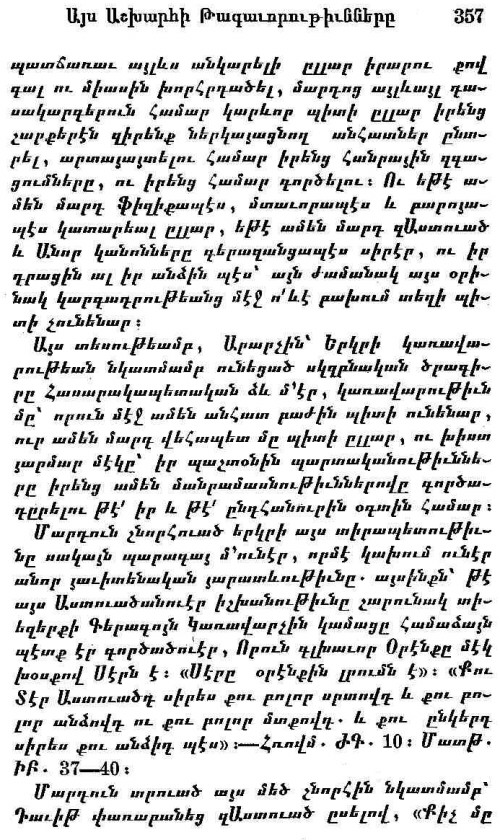 Այս Աշխարհի Թագաւորութիւնները 357
պատճառաւ այլևս անկարելի ըլլար իրարու քով
գալ ու միասին խորհրդածել, մարդոց այլևայլ դա-
սակարգերուն համար կարևոր պիտի ըլլար իրենց
շարքերէն զիրենք ներկայացնող անհատներ ընտ-
րել, արտայայտելու համար իրենց հանրային զգա-
ցումները, ու իրենց համար գործելու։ Ու եթէ ա-
մեն մարդ ֆիզիքապէս, մտաւորապէս և բարոյա-
պէս կատարեալ ըլլար, եթէ ամեն մարդ զԱստուած
և Անոր կանոնները գերազանցապէս սիրէր, ու իր
դրացին ալ իր անձին պէս՝ այն ժամանակ այս օրի-
նակ կարգադրութեանց մէջ ո՛ևէ բախում տեղի պի-
տի չունենար։
Այս տեսութեամբ, Արարչին՝ Երկրի կառավա-
րութեան նկատմամբ ունեցած սկզբնական ծրագի-
րը Հասարակապետական ձև մ՚էր, կառավարութիւն
մը՝ որուն մէջ ամեն անհատ բաժին պիտի ունենար,
ուր ամեն մարդ վեհապետ մը պիտի ըլլար, ու խիստ
յարմար մէկը՝ իր պաշտօնին պարտականութիւննե-
րը իրենց ամեն մանրամասնութիւններովը գործա-
դըրելու թէ՛ իր և թէ՛ ընդհանուրին օգտին համար։
Մարդուն շնորհուած երկրի այս տիրապետութիւ-
նը սակայն պարագայ մ՚ունէր, որմէ կախում ունէր
անոր յաւիտենական յարատևութիւնը. այսինքն՝ թէ
այս Աստուածանուէր իշխանութիւնը շարունակ տի-
եզերքի Գերագոյն Կառավարչին կամացը համաձայն
պէտք էր գործածուէր, Որուն գլխաւոր Օրէնքը մէկ
խօսքով Սէրն է։ «Սէրը օրէնքին լրումն է»։ «Քու
Տէր Աստուածդ սիրես քու բոլոր սրտովդ և քու բո-
լոր անձովդ ու քու բոլոր մտքովդ. և քու ընկերդ
սիրես քու անձիդ պէս»։—Հռովմ. ԺԳ. 10։ Մատթ.
ԻԲ. 37—40։
Մարդուն տրուած այս մեծ շնորհին նկատմամբ՝
Դաւիթ փառաբանեց զԱստուած ըսելով, «Քիչ մը